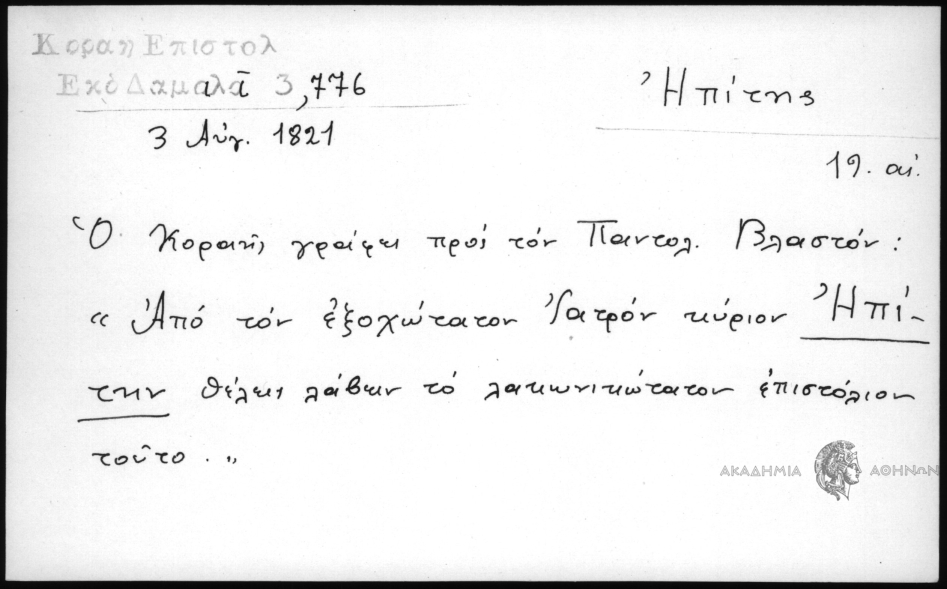 Κοραη Επιστολ
Εκδ Δαμαλα 3,776
3 Αὐγ. 1821
Ἠπίτης
19. αἰ.
Ὁ Κοραῆς γράφει πρὸς τὸν Παντολ. Βλαστόν:
« Ἀπὸ τὸν ἐξοχώτατον Ἰατρὸν κύριον Ἠπί-
την θέλεις λάβειν τὸ λακωνικώτατον ἐπιστόλιον
τοῦτο. »
ΑΚΑΔΗΜΙΑ ΑΘΗΝΩΝ